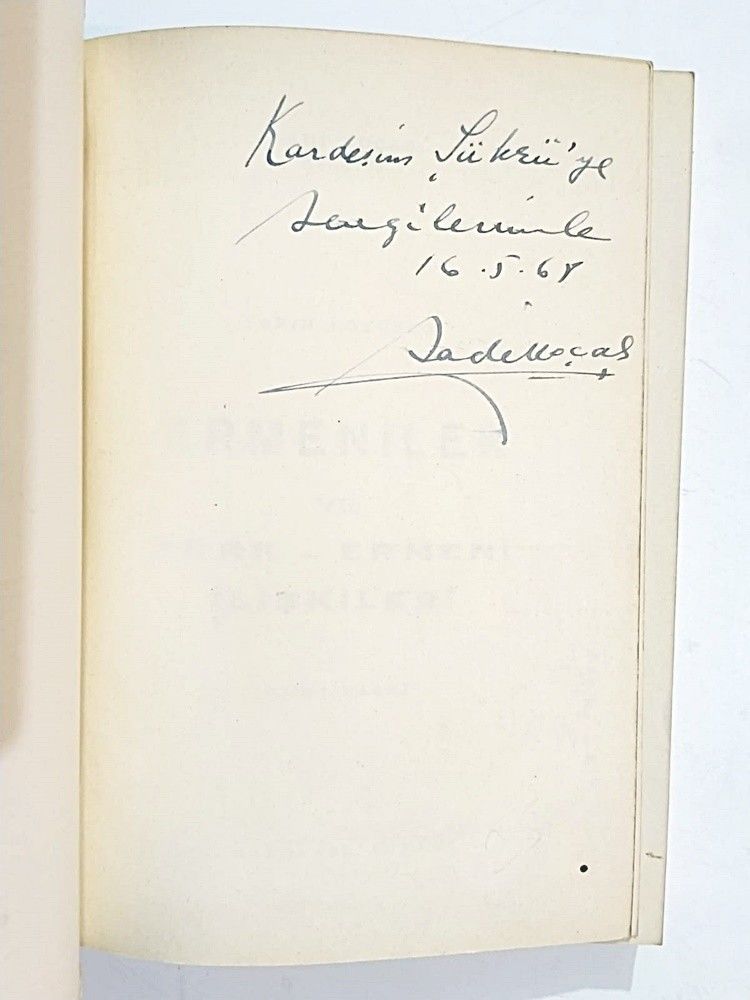 Kardeşim Şükrü'ye
Sevgilerimle
16.5.68
Sadi Koçaş
ERMENİLER
VE
TÜRK - ERMENİ
İLİŞKİLERİ